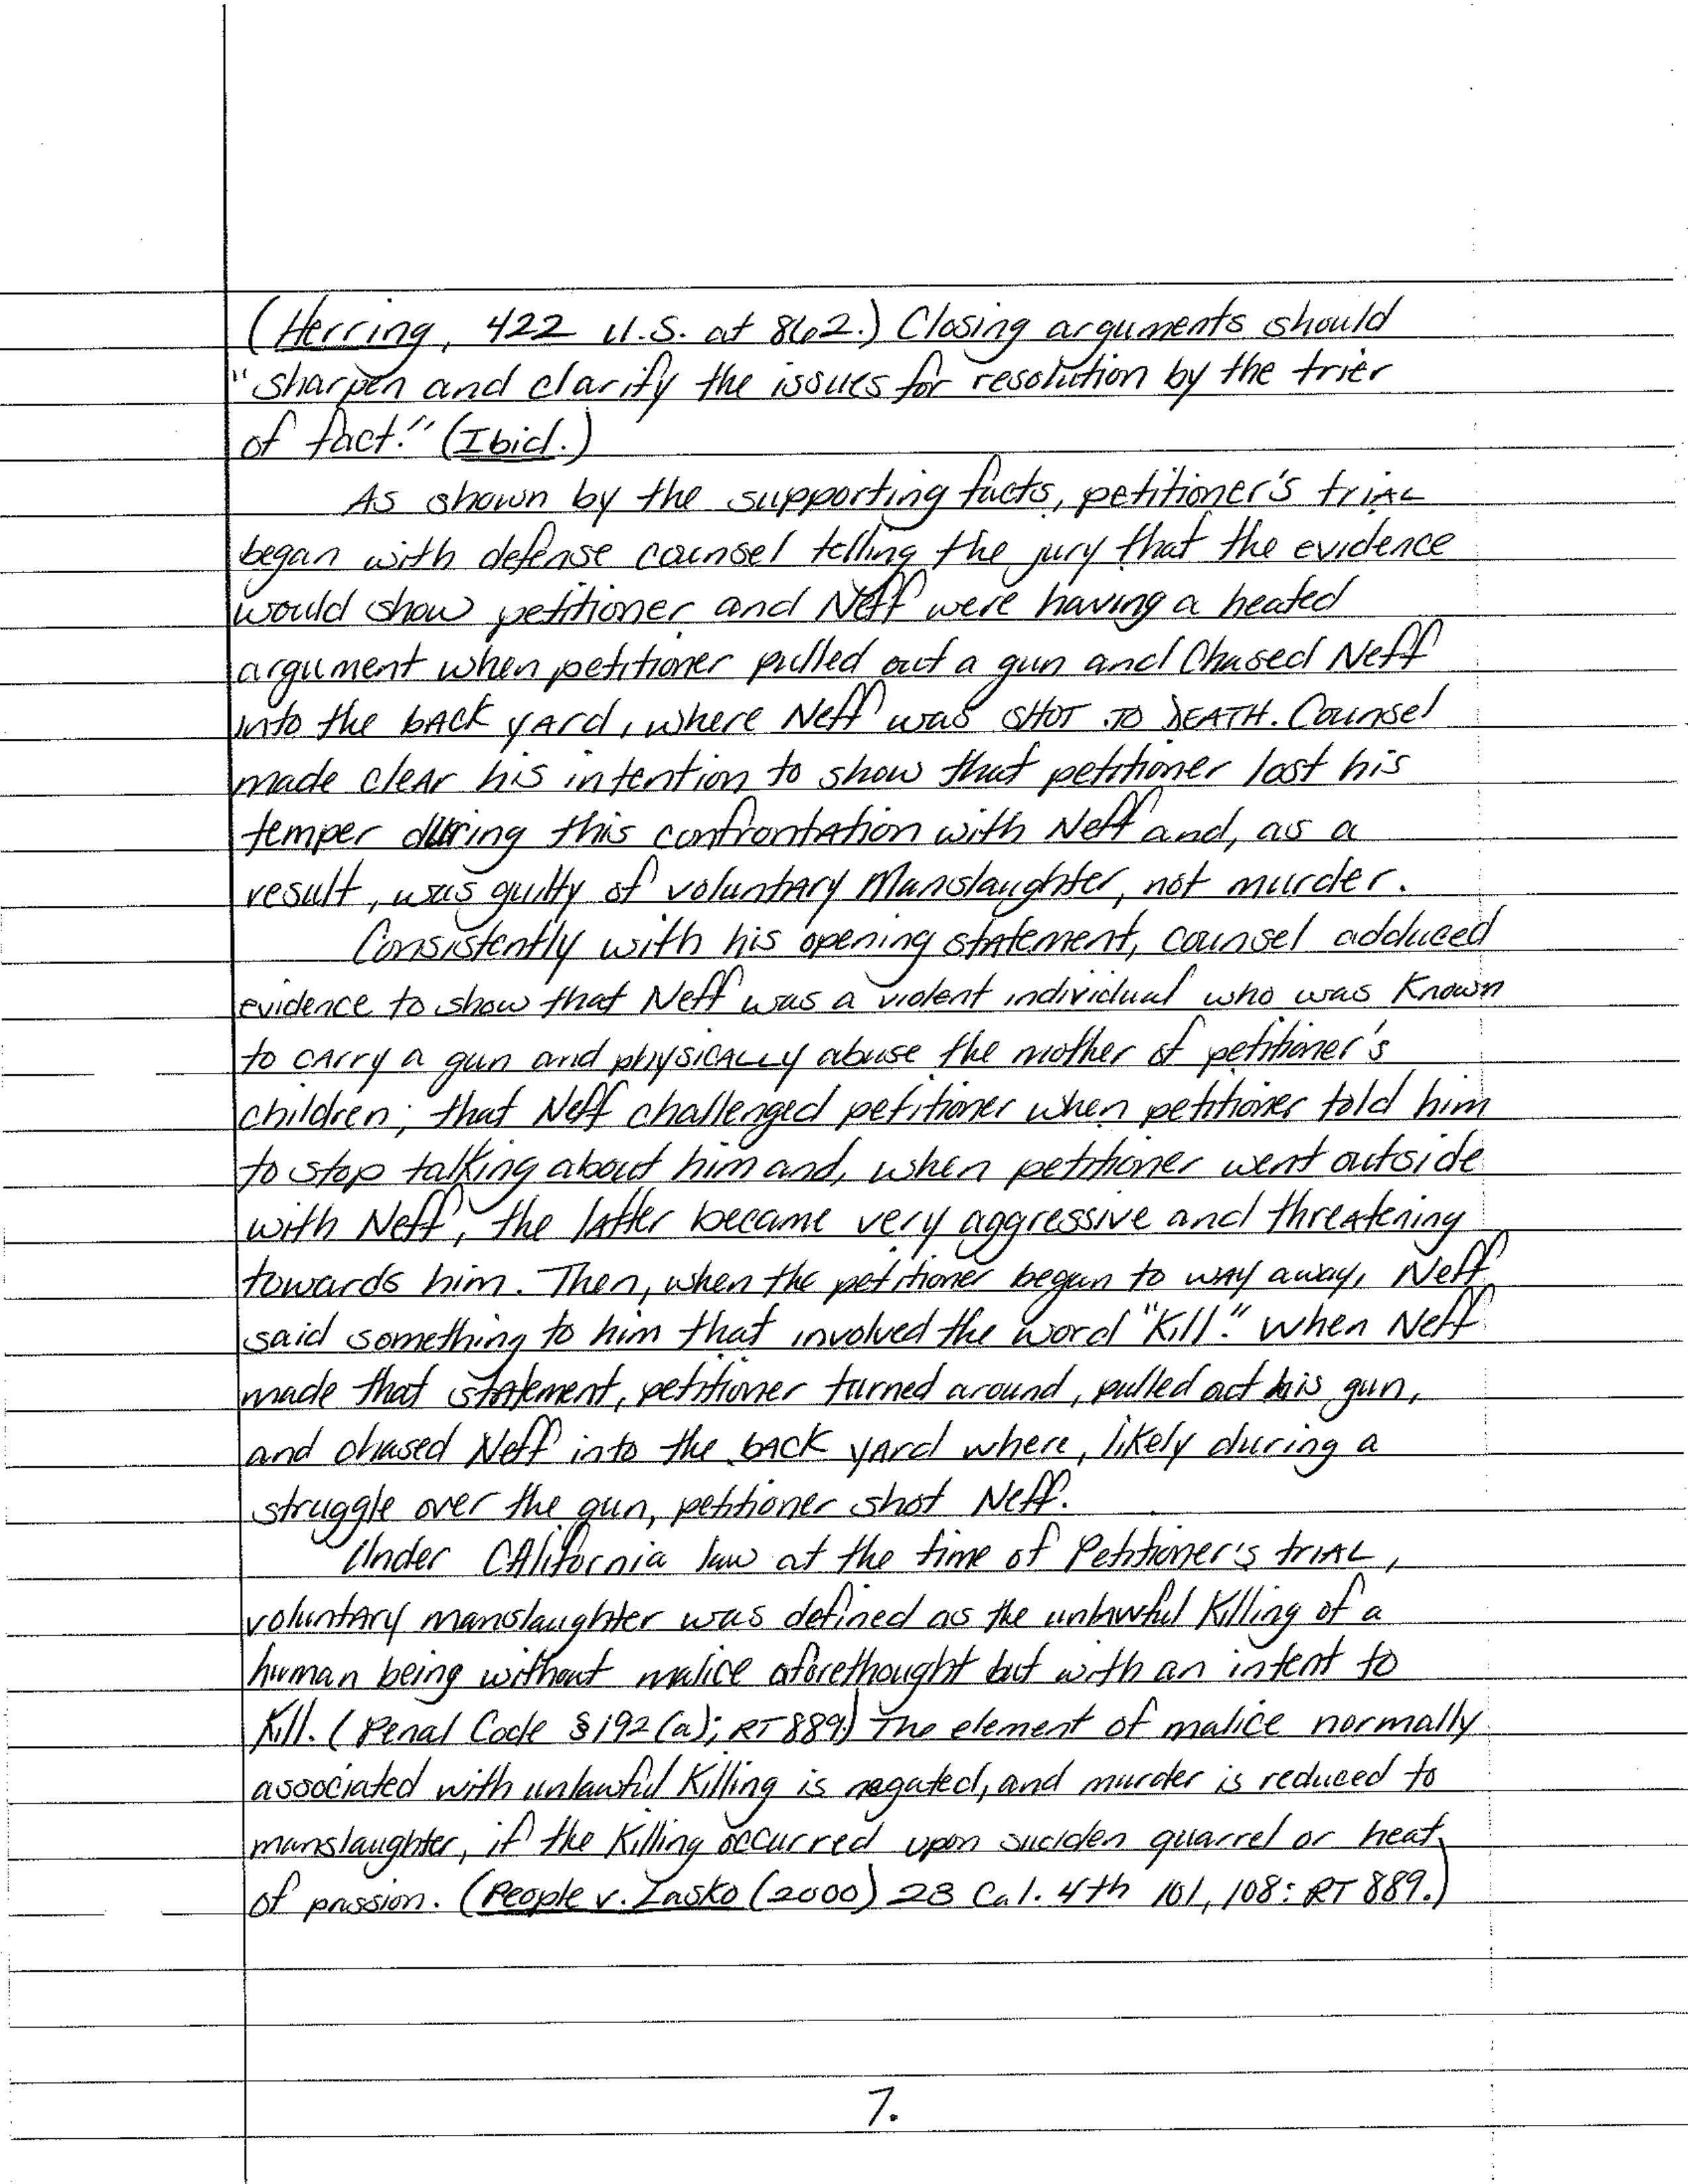 (Herring, 422 U.S. at 862.) Closing arguments should
"sharpen and clarify the issues for resolution by the trier
of fact." (Ibid.)
As shown by the supporting facts, petitioner's triAL
began with defense counsel telling the jury that the evidence
would show petitioner and Neff were having a heated
argument when petitioner pulled out a gun and Chased Neff
into the bAck yArd, where Neff was SHOT TO DEATH. Counsel
made cleAr his intention to show that petitioner lost his
temper during this confrontAtion with Neff and, as a
result, was guilty of voluntAry Manslaughter, not murder.
Consistently with his opening stAtement, counsel adduced
evidence to show that Neff was a violent individual who was Known
to cArry a gun and physicALLy abuse the mother of petitioner's
children; that Neff challenged petitioner when petitioner told him
to stop talking about him and, when petitioner went outside
with Neff, the lAtter became very aggressive and threAtening
towards him. Then, when the petitioner began to wAy away, Neff
said something to him that involved the word "Kill." When Neff
made that stAtement, petitioner turned around, pulled out his gun,
and chased Neff into the bAck yArd where, likely during a
struggle over the gun, petitioner shot Neff.
Under CAlifornia law at the time of Petitioner's triAL,
voluntAry manslaughter was defined as the unlawful Killing of a
human being without malice aforethought but with an intent to
Kill. (Penal Code § 192 (a); RT 889.) The element of malice normally
associated with unlawful Killing is negated, and murder is reduced to
manslaughter, if the Killing occurred upon sudden quarrel or heat
of passion. (People v. Lasko (2000) 23 Cal. 4th 101, 108: RT 889.)
7.